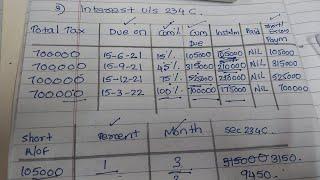 3) Interest u/s 234C.
Total Tax Due on Com% Cum Due Instalm Paid short/Excess Paym
700000 15-6-21 15% 105000 105000 NIL 105000
700000 15-9-21 45% 315000 210000 NIL 315000
700000 15-12-21 75% 525000 210000 NIL 525000
700000 15-3-22 100% 700000 175000 NIL 700000
short Percent Month sec 234C.
105000 1 3 315000 3150.
9450.